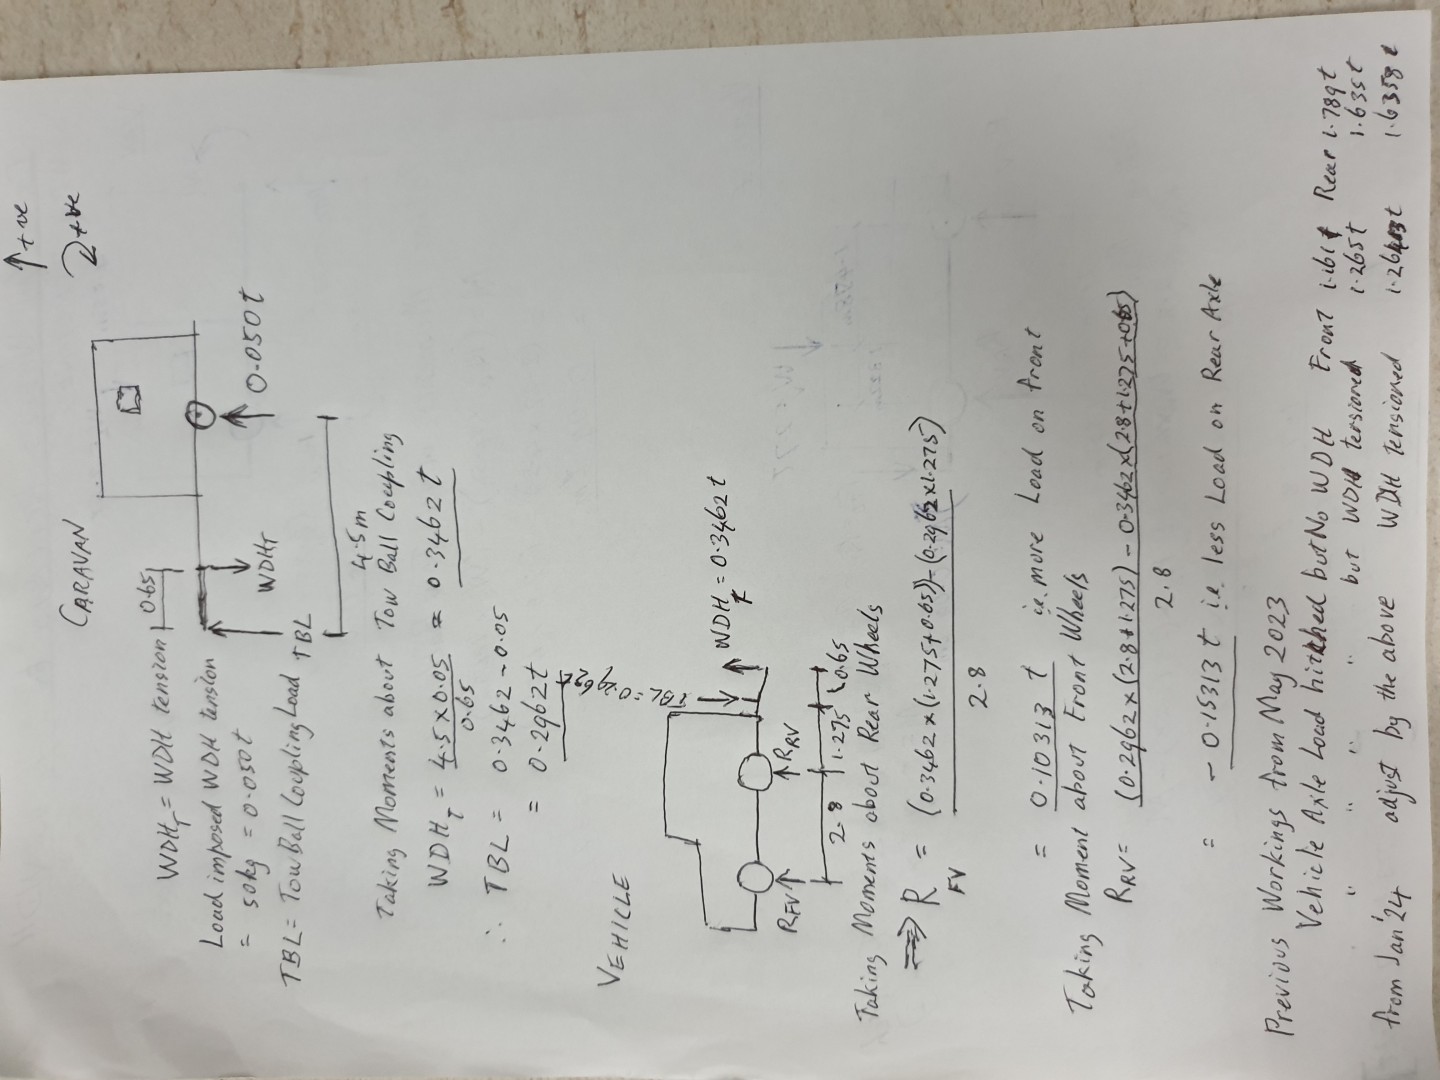 ↑ +ve
↷ +ve
CARAVAN
WDH_T = WDH tension
0.65
Load imposed WDH tension
= 50kg = 0.050t
WDH_T
0.050t
TBL = TowBall Coupling Load
TBL
4.5m
Taking Moments about Tow Ball Coupling
WDH_T = 4.5 x 0.05 / 0.65 = 0.3462t
∴ TBL = 0.3462 - 0.05
= 0.2962t
VEHICLE
TBL = 0.2962t
WDH_T = 0.3462t
R_FV
R_RV
2.8 1.275 0.65
Taking Moments about Rear Wheels
⇒ R_FV = (0.3462 x (1.275+0.65)) - (0.2962 x 1.275) / 2.8
= 0.10313 t ie. more Load on front
Taking Moment about Front Wheels
R_RV = (0.2962 x (2.8+1.275) - 0.3462 x (2.8+1.275+0.65) / 2.8
= - 0.15313 t ie less Load on Rear Axle
Previous Workings from May 2023
Vehicle Axle Load hitched but No WDH Front 1.161t Rear 1.789t
" " " " but WDH tensioned 1.265t 1.635t
from Jan'24 adjust by the above WDH tensioned 1.26413t 1.6358t